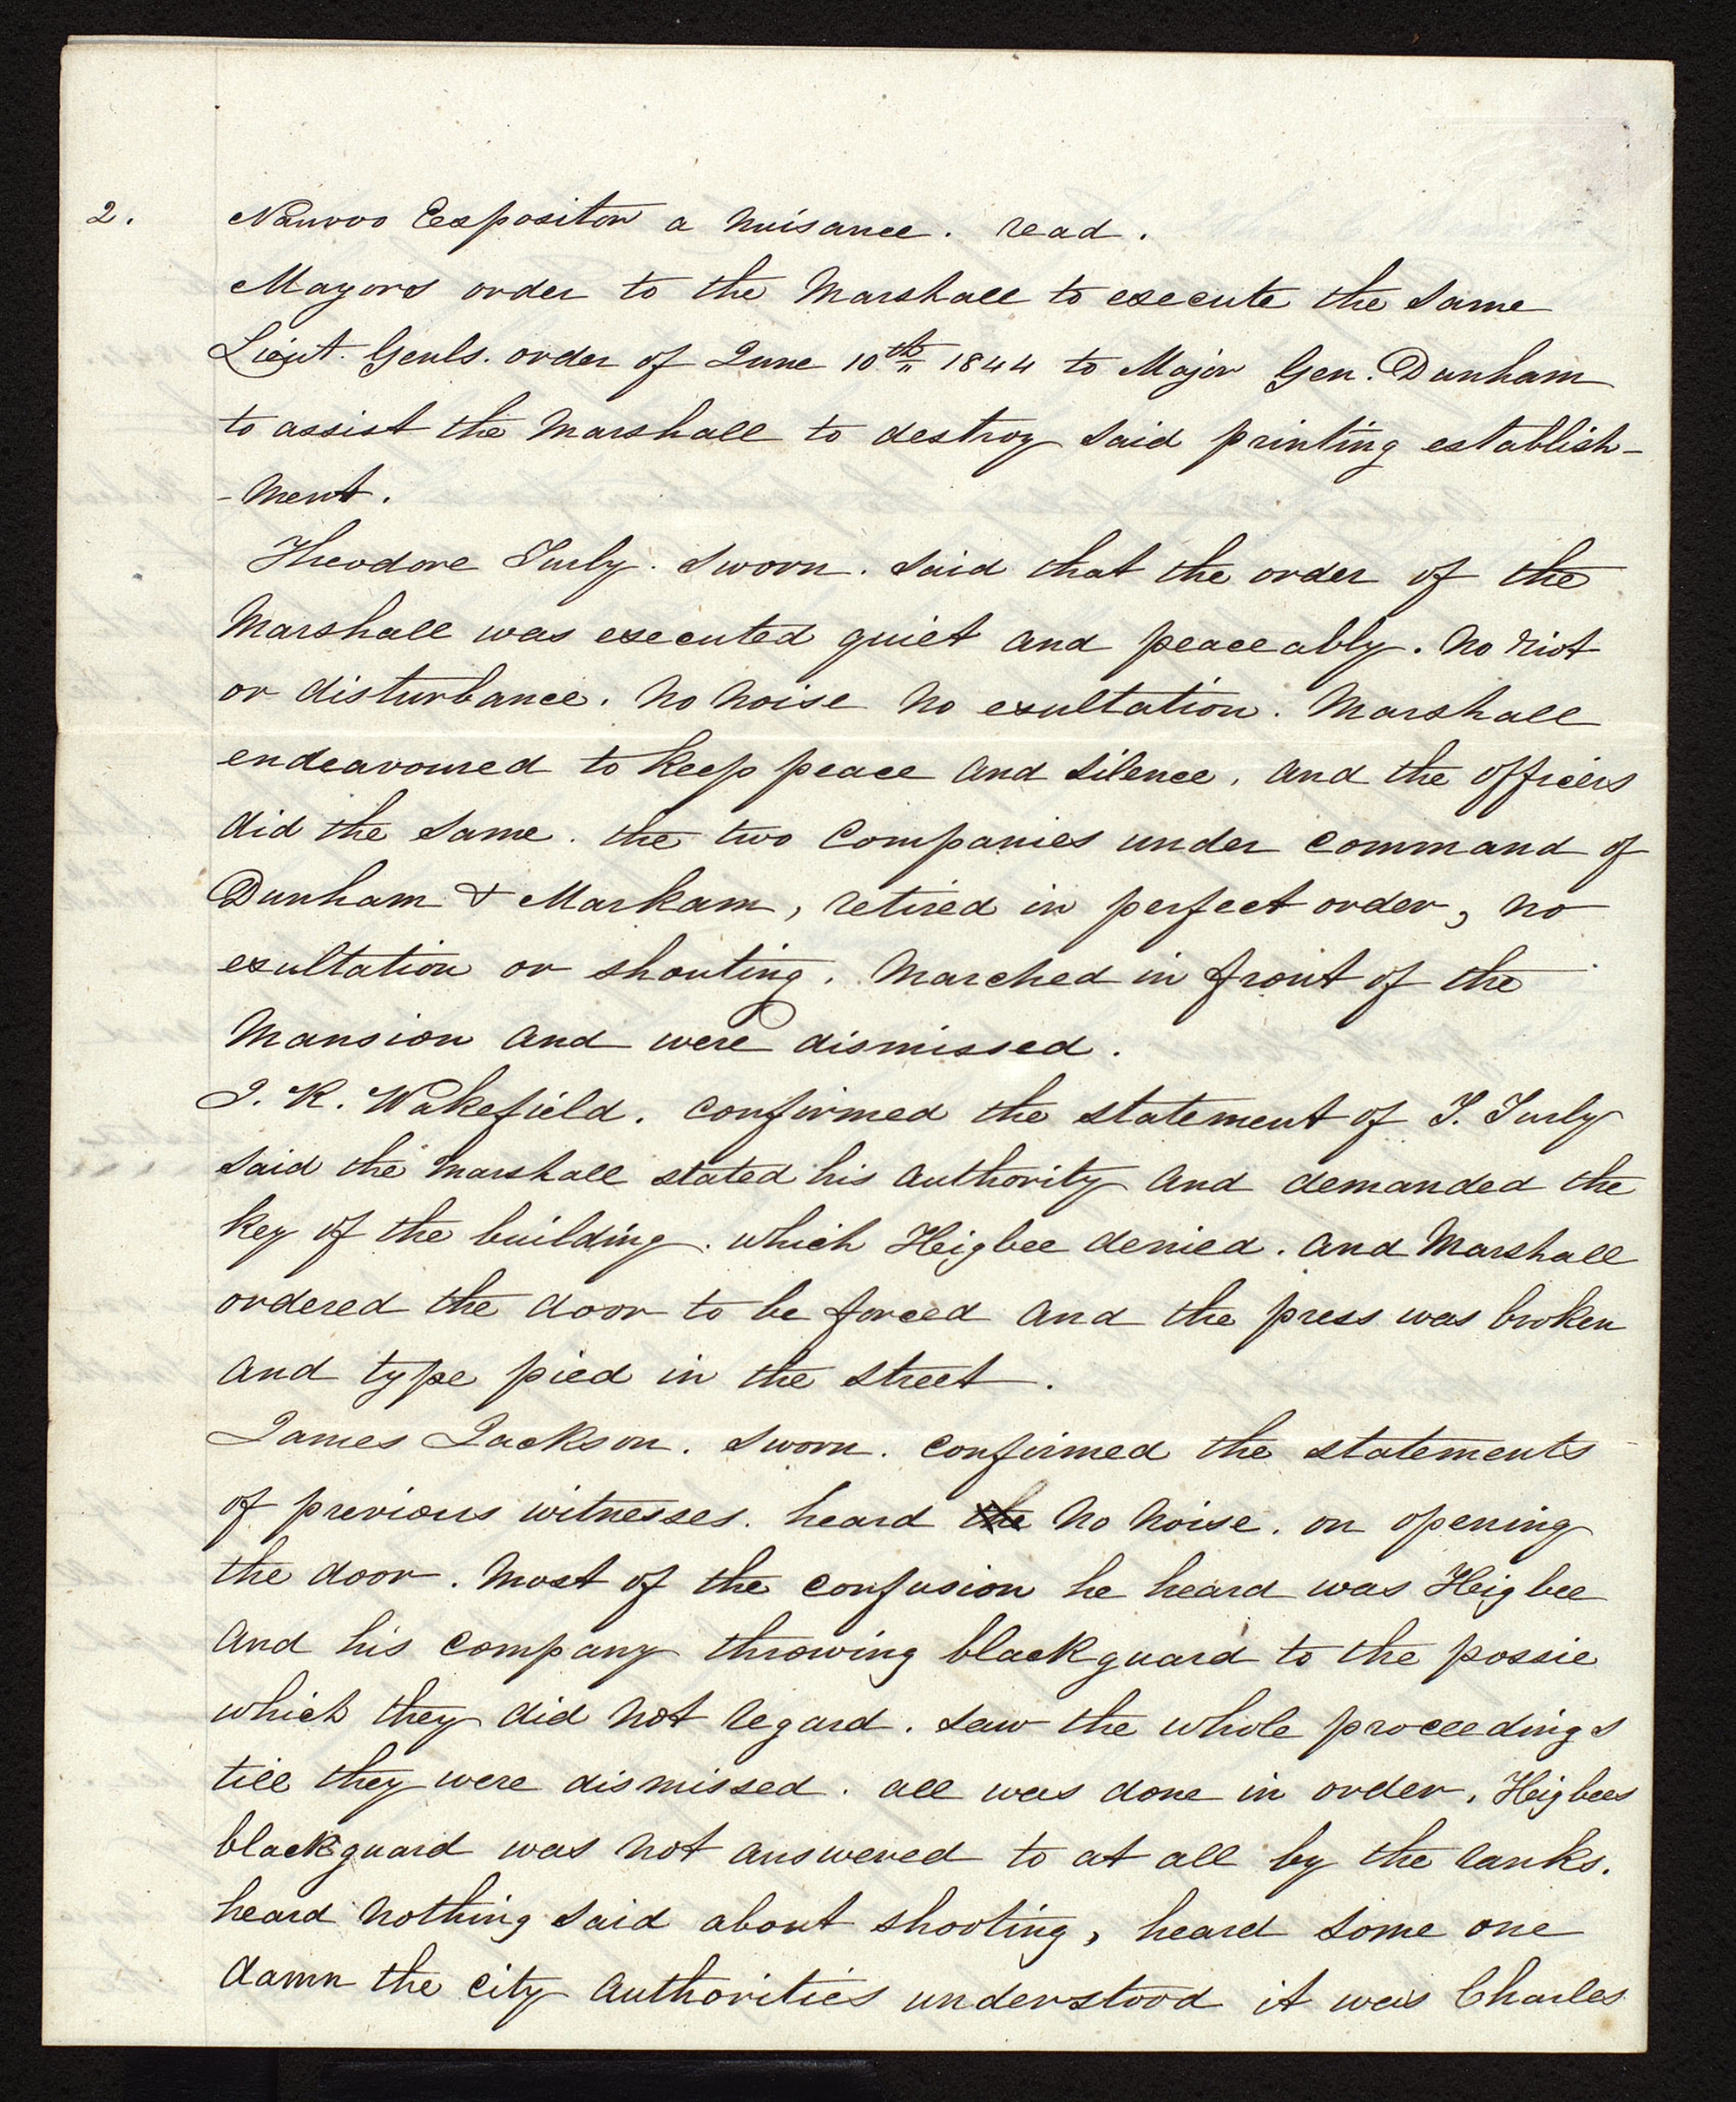 2. Nauvoo Expositor a nuisance. read.
Mayors order to the Marshall to execute the same
Lieut. Genls. order of June 10th 1844 to Major Gen. Dunham
to assist the Marshall to destroy said printing establish-
-ment.
Theodore Turly. sworn. said that the order of the
Marshall was executed quiet and peaceably. no riot
or disturbance. no noise no exultation. Marshall
endeavoured to keep peace and silence. and the officers
did the same. the two companies under command of
Dunham & Markam, retired in perfect order, no
exultation or shouting. Marched in front of the
Mansion and were dismissed.
J. R. Wakefield. confirmed the statement of T. Turly
said the Marshall stated his authority and demanded the
key of the building. which Heigbee denied. and Marshall
ordered the door to be forced and the press was broken
and type pied in the street.
James Jackson. sworn. confirmed the statements
of previous witnesses. heard the no noise. on opening
the door. most of the confusion he heard was Heigbee
and his company throwing blackguard to the possie
which they did not regard. saw the whole proceedings
till they were dismissed. all was done in order. Heigbees
blackguard was not answered to at all by the ranks.
heard nothing said about shooting, heard some one
damn the city authorities understood it was Charles